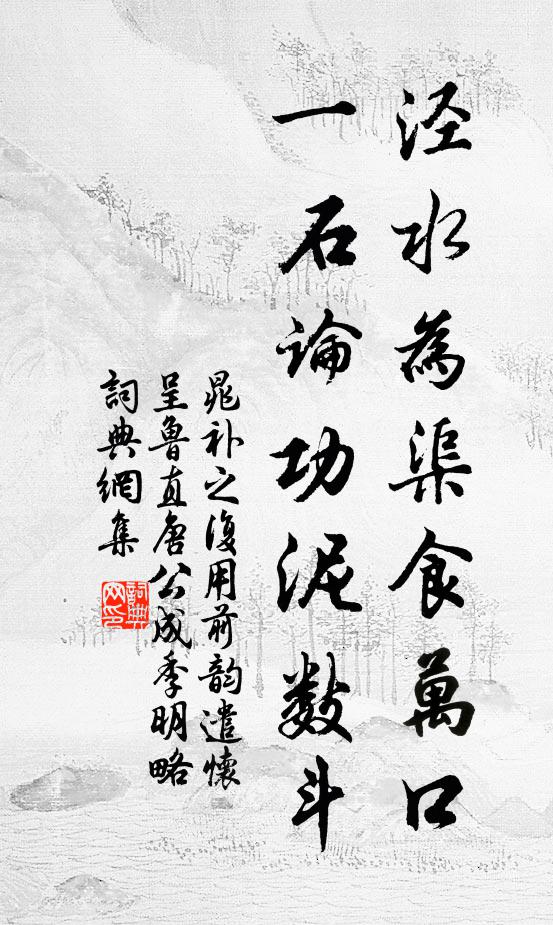 涇水為渠食萬口
一石論功泥数斗
晁补之復用前韵遣懷
呈魯直唐公成季明略
詞典網集
詞典
网印